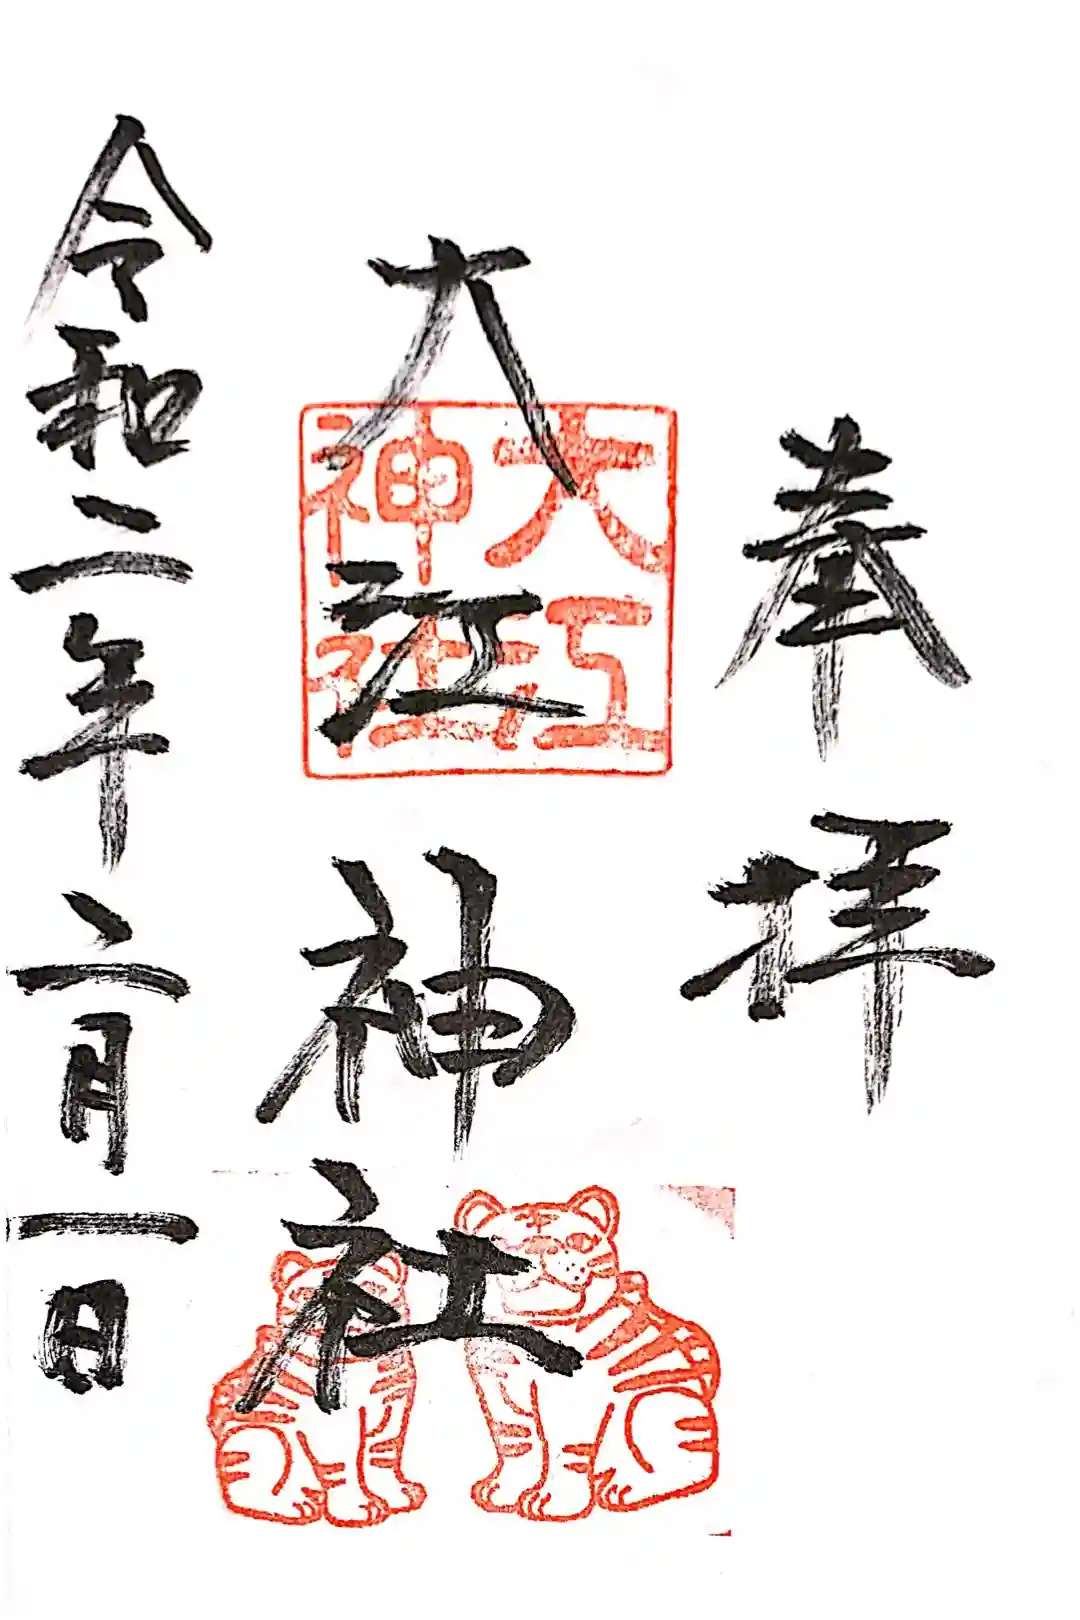 奉拝
大江神社
大江
神社
令和二年二月一日